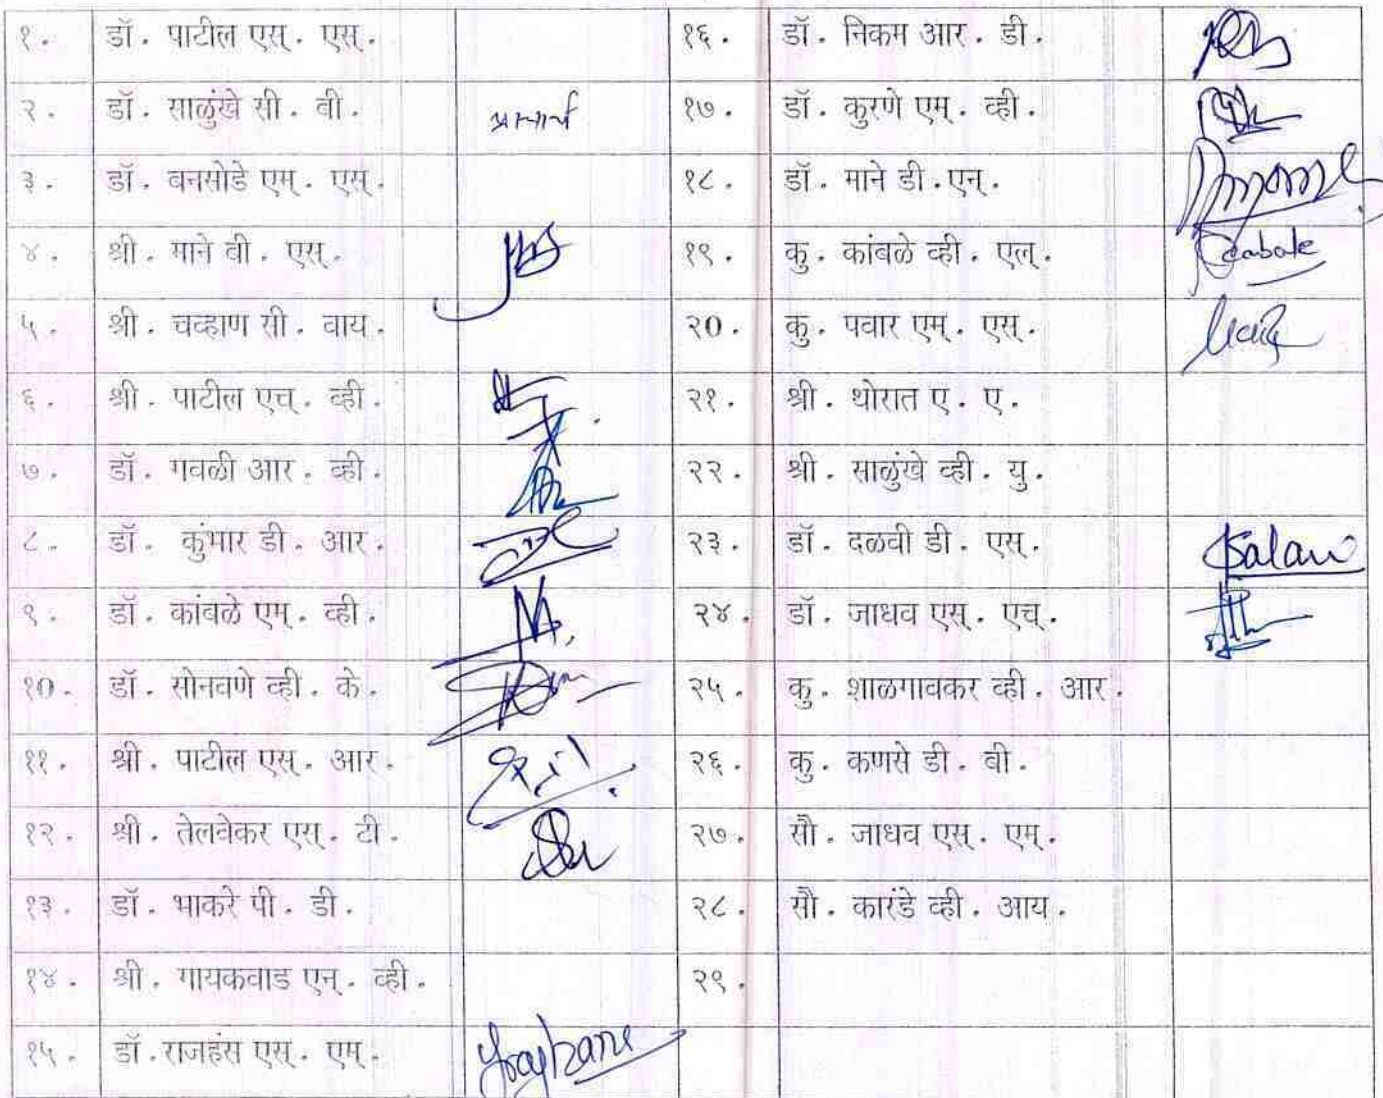 १. डॉ. पाटील एस्. एस्. १६. डॉ. निकम आर. डी.
२. डॉ. साळुंखे सी. बी. प्राचार्य १७. डॉ. कुरणे एम्. व्ही.
३. डॉ. बनसोडे एम्. एस्. १८. डॉ. माने डी.एन्.
४. श्री. माने बी. एस्. १९. कु. कांबळे व्ही. एल्.
५. श्री. चव्हाण सी. वाय. २०. कु. पवार एम्. एस्.
६. श्री. पाटील एच्. व्ही. २१. श्री. थोरात ए. ए.
७. डॉ. गवळी आर. व्ही. २२. श्री. साळुंखे व्ही. यु.
८. डॉ. कुंभार डी. आर. २३. डॉ. दळवी डी. एस्.
९. डॉ. कांबळे एम्. व्ही. २४. डॉ. जाधव एस्. एच्.
१०. डॉ. सोनवणे व्ही. के. २५. कु. शाळगावकर व्ही. आर.
११. श्री. पाटील एस्. आर. २६. कु. कणसे डी. बी.
१२. श्री. तेलवेकर एस्. टी. २७. सौ. जाधव एस्. एम्.
१३. डॉ. भाकरे पी. डी. २८. सौ. कारंडे व्ही. आय.
१४. श्री. गायकवाड एन्. व्ही. २९.
१५. डॉ.राजहंस एस्. एम्.